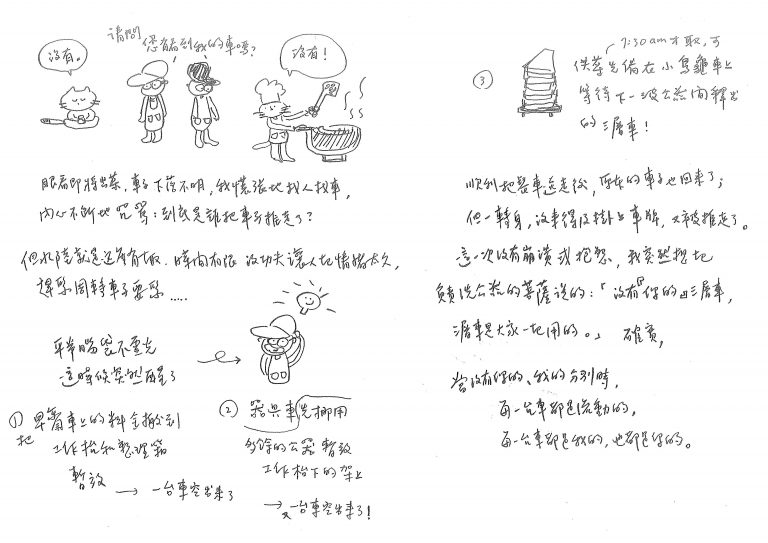 請問
您有看到我的車嗎?
沒有。
沒有!
眼看即將出菜,車子下落不明,我慌張地找人找車,
內心不斷地咒罵:到底是誰把車子推走了?
但水陸就是還有香板,時間有限 沒功夫讓人在情緒太久,
趕緊周轉車子要緊.....
平常腦袋不靈光
這時候突然醒了
① 把早齋車上的料全搬到
工作枱和整理箱
暫放
→ 一台車空出來了
② 器具車先挪用
多餘的公器暫放
工作枱下的架上
→ 又一台車空出來了!
③
7:30am才取,可
供菜先備在小烏龜車上
等待下一波公爺間釋出
的三層車!
順利把齋車送走後,原本的車子也回來了;
但一轉身,沒來得及掛上車牌,又被推走了。
這一次沒有崩潰或抱怨,我突然想起
負責洗公爺的菩薩說的:「沒有『你的』三層車,
三層車是大家一起用的。」 確實,
當沒有你的、我的分別時,
每一台車都是流動的,
每一台車都是我的,也都是你的。